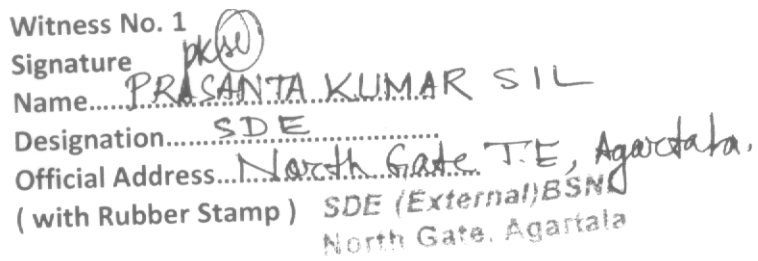 Witness No. 1
Signature pksil
Name.....PRASANTA KUMAR SIL
Designation.....SDE
Official Address...North Gate T.E, Agartala.
( with Rubber Stamp ) SDE (External)BSNL
North Gate, Agartala